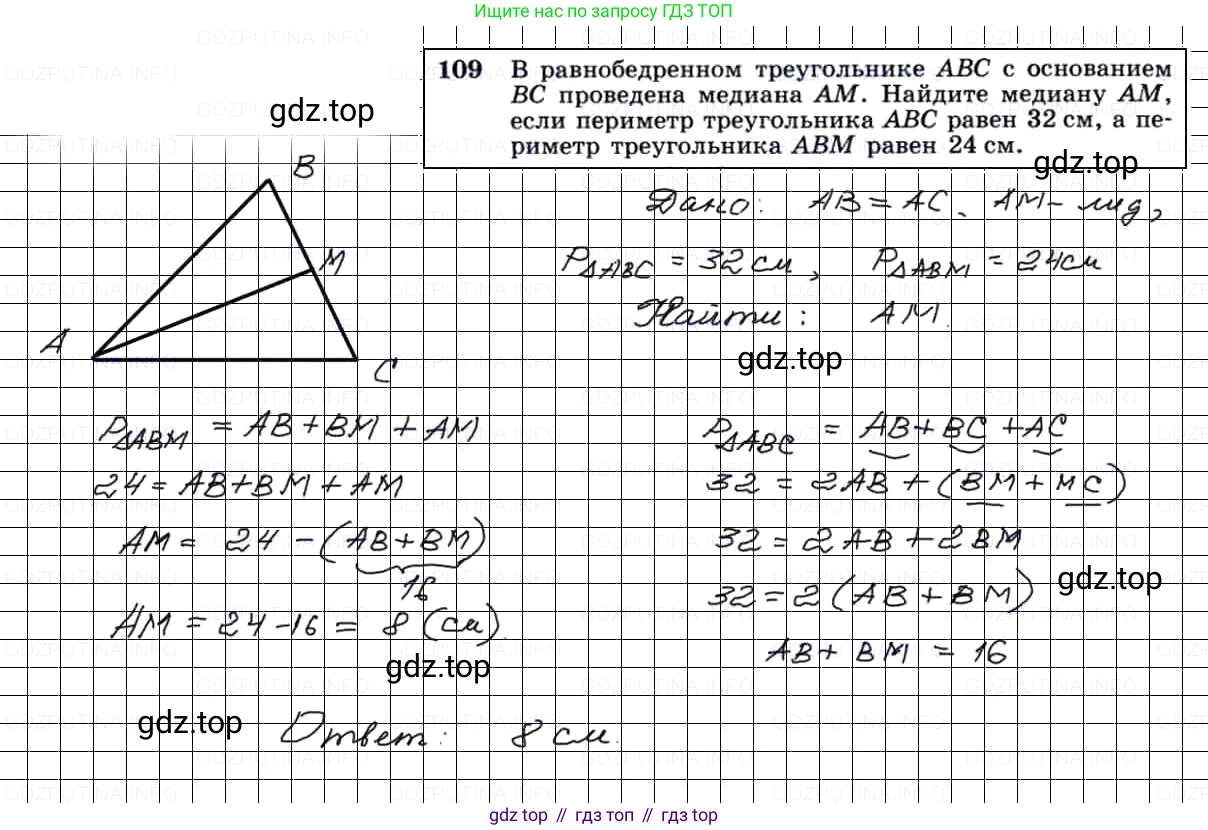 Ищите нас по запросу ГДЗ ТОП
109 В равнобедренном треугольнике ABC с основанием
BC проведена медиана AM. Найдите медиану AM,
если периметр треугольника ABC равен 32 см, а пе-
риметр треугольника ABM равен 24 см.
gdz.top
gdz.top
B
M
A
C
Дано: AB = AC, AM – мед,
P△ABC = 32 см, P△ABM = 24 см
Найти: AM.
gdz.top
P△ABM = AB + BM + AM
24 = AB + BM + AM
AM = 24 – (AB + BM)
16
AM = 24 – 16 = 8 (см).
gdz.top
P△ABC = AB + BC + AC
32 = 2AB + (BM + MC)
32 = 2AB + 2BM
gdz.top
32 = 2 (AB + BM)
AB + BM = 16
gdz.top
Ответ: 8 см.
gdz top // гдз топ // гдз top
GDZPUTINA.INFO